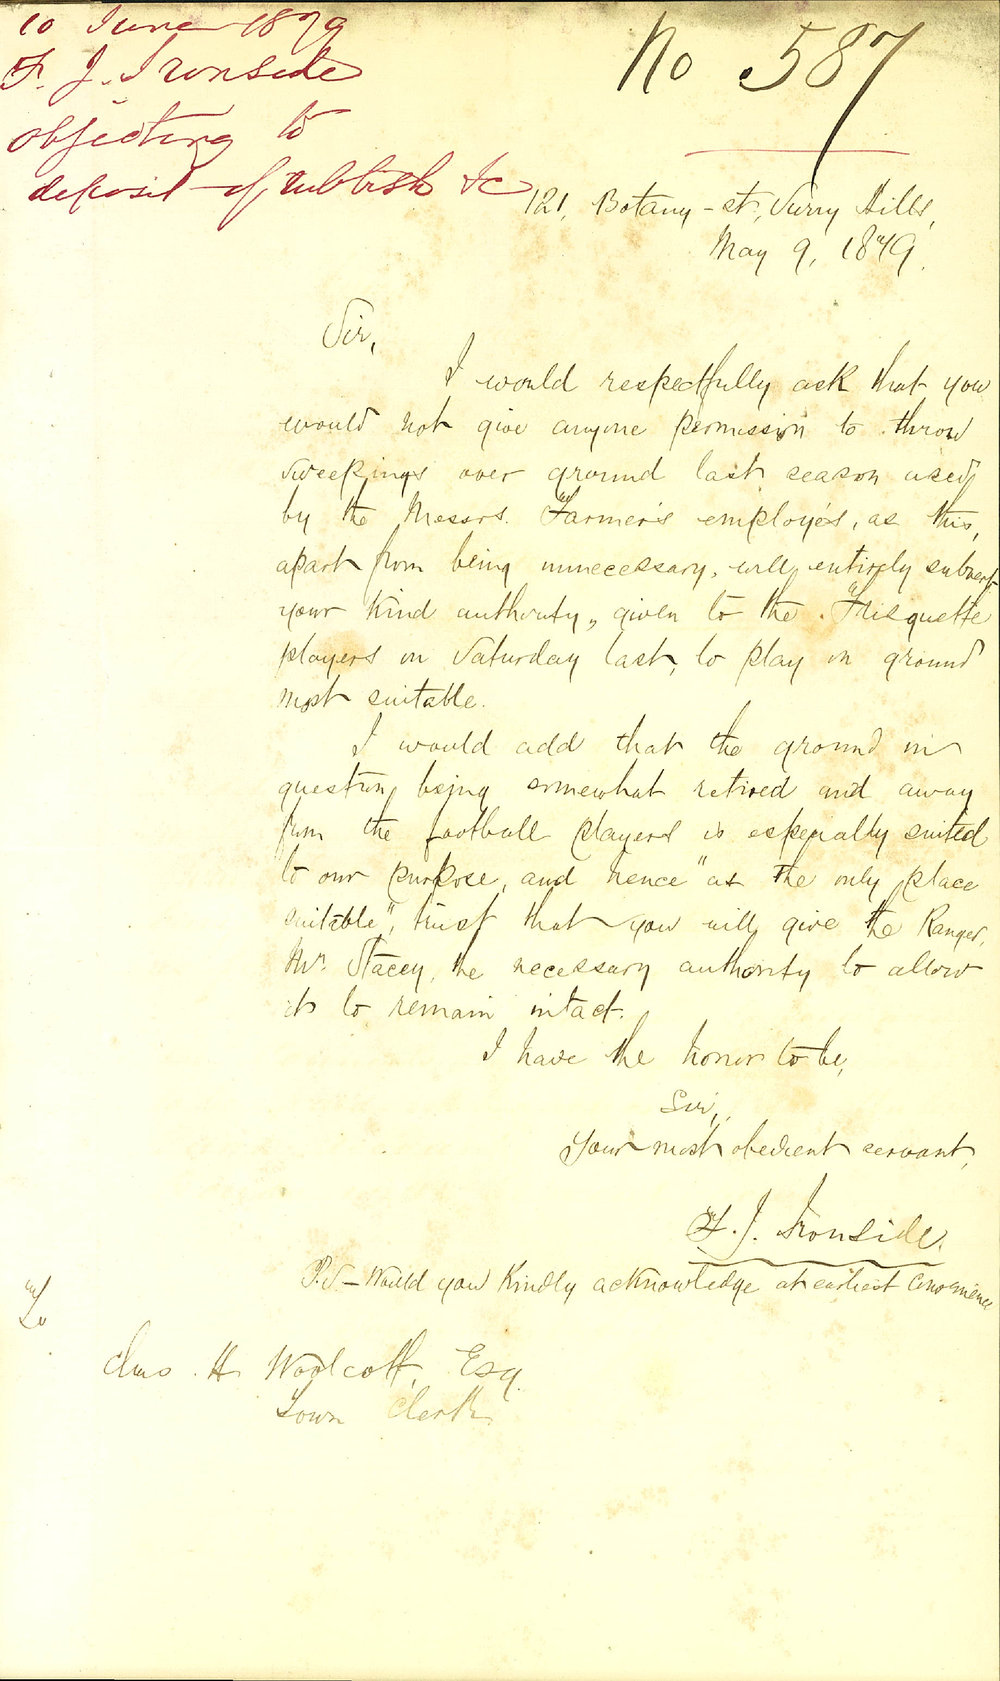 10 June 1879
F. J. Ironside
objecting to
deposit of rubbish &c
No 587
121, Botany-st, Surry Hills,
May 9, 1879.
Sir,
I would respectfully ask that you
would not give anyone permission to throw
sweepings over ground last season used
by the Messrs. Farmer's employés, as this,
apart from being unnecessary, will entirely subvert
your kind authority, given to the
players on Saturday last, to play on ground
most suitable.
I would add that the ground in
question, being somewhat retired and away
from the football players is especially suited
to our purpose, and hence "as the only place
suitable", trust that you will give the Ranger,
Mr. Stacey, the necessary authority to allow
it to remain intact.
I have the honor to be,
Sir,
Your most obedient servant,
F. J. Ironside.
P.S. - Would you kindly acknowledge at earliest convenience
To
Chas. H. Woolcott, Esq.
Town Clerk